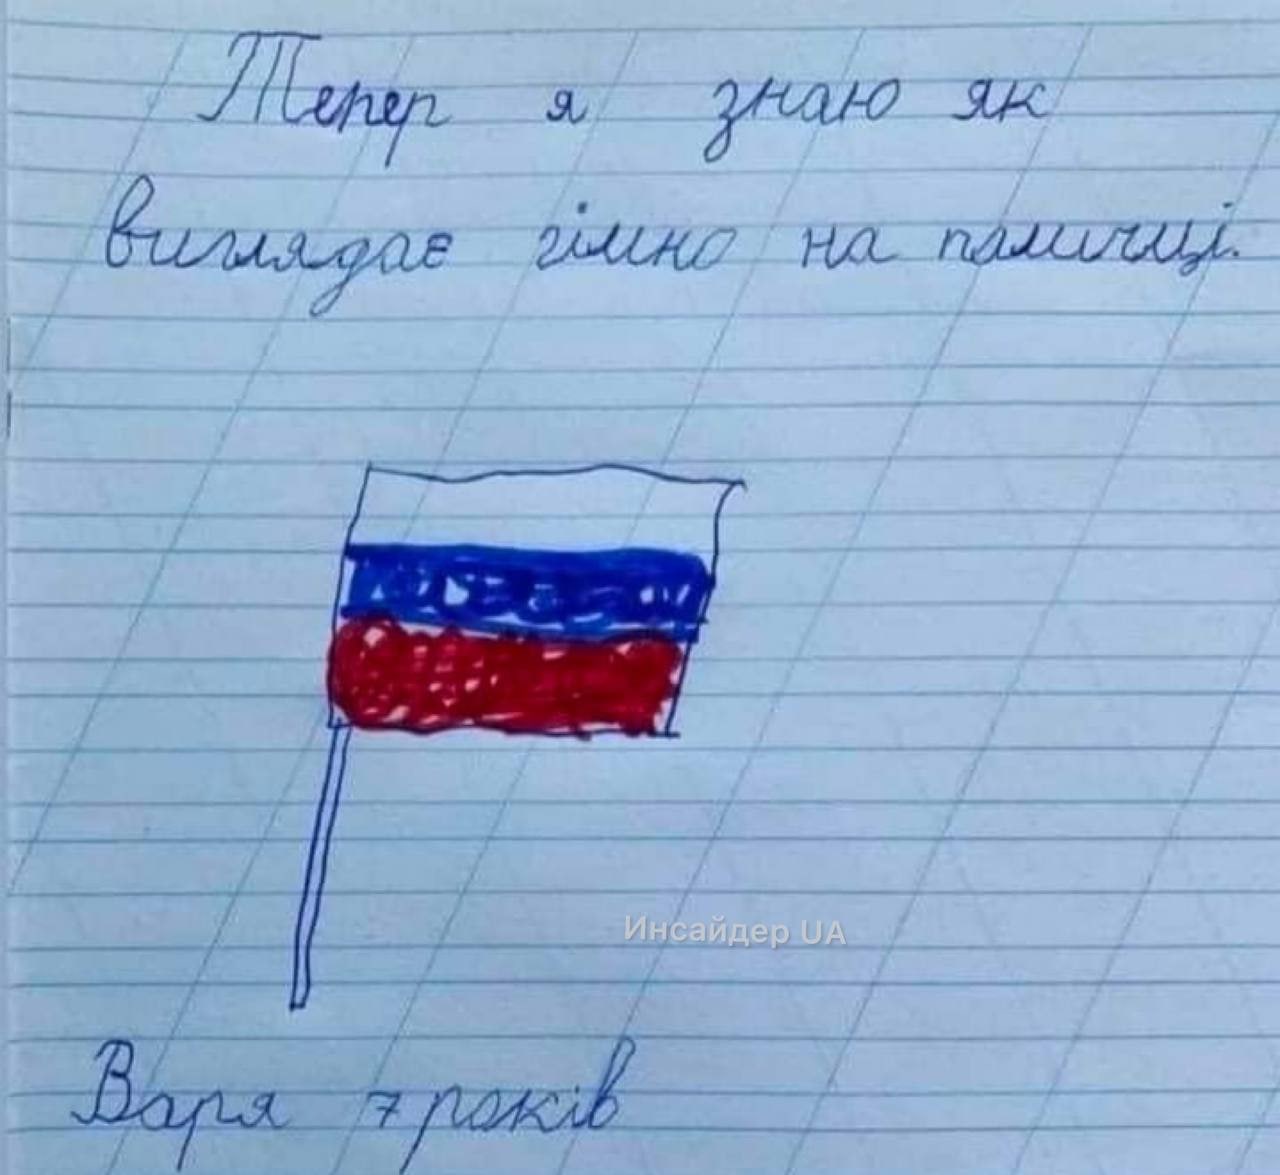 Тепер я знаю як
виглядає гімно на паличці.
Инсайдер UA
Варя 7 років